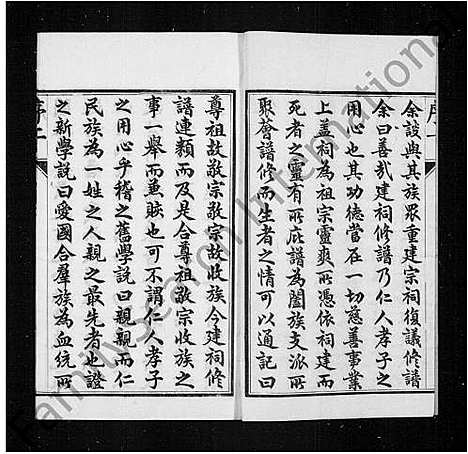 序一
余設與其族眾重建宗祠復議修譜
余曰善哉建祠修譜乃仁人孝子之
用心也其功德當在一切慈善事業
上蓋祠為祖宗靈爽所憑依祠建而
死者之靈有所庇譜為闔族支派所
聚薈譜修而生者之情可以通記曰
尊祖故敬宗敬宗故收族今建祠修
譜連類而及是合尊祖敬宗收族之
事一舉而兼賅也可不謂仁人孝子
之用心乎稽之舊學說曰親親而仁
民族為一姓之人親之最先者也證
之新學說曰愛國合羣族為血統所
序二
FamilySearch International